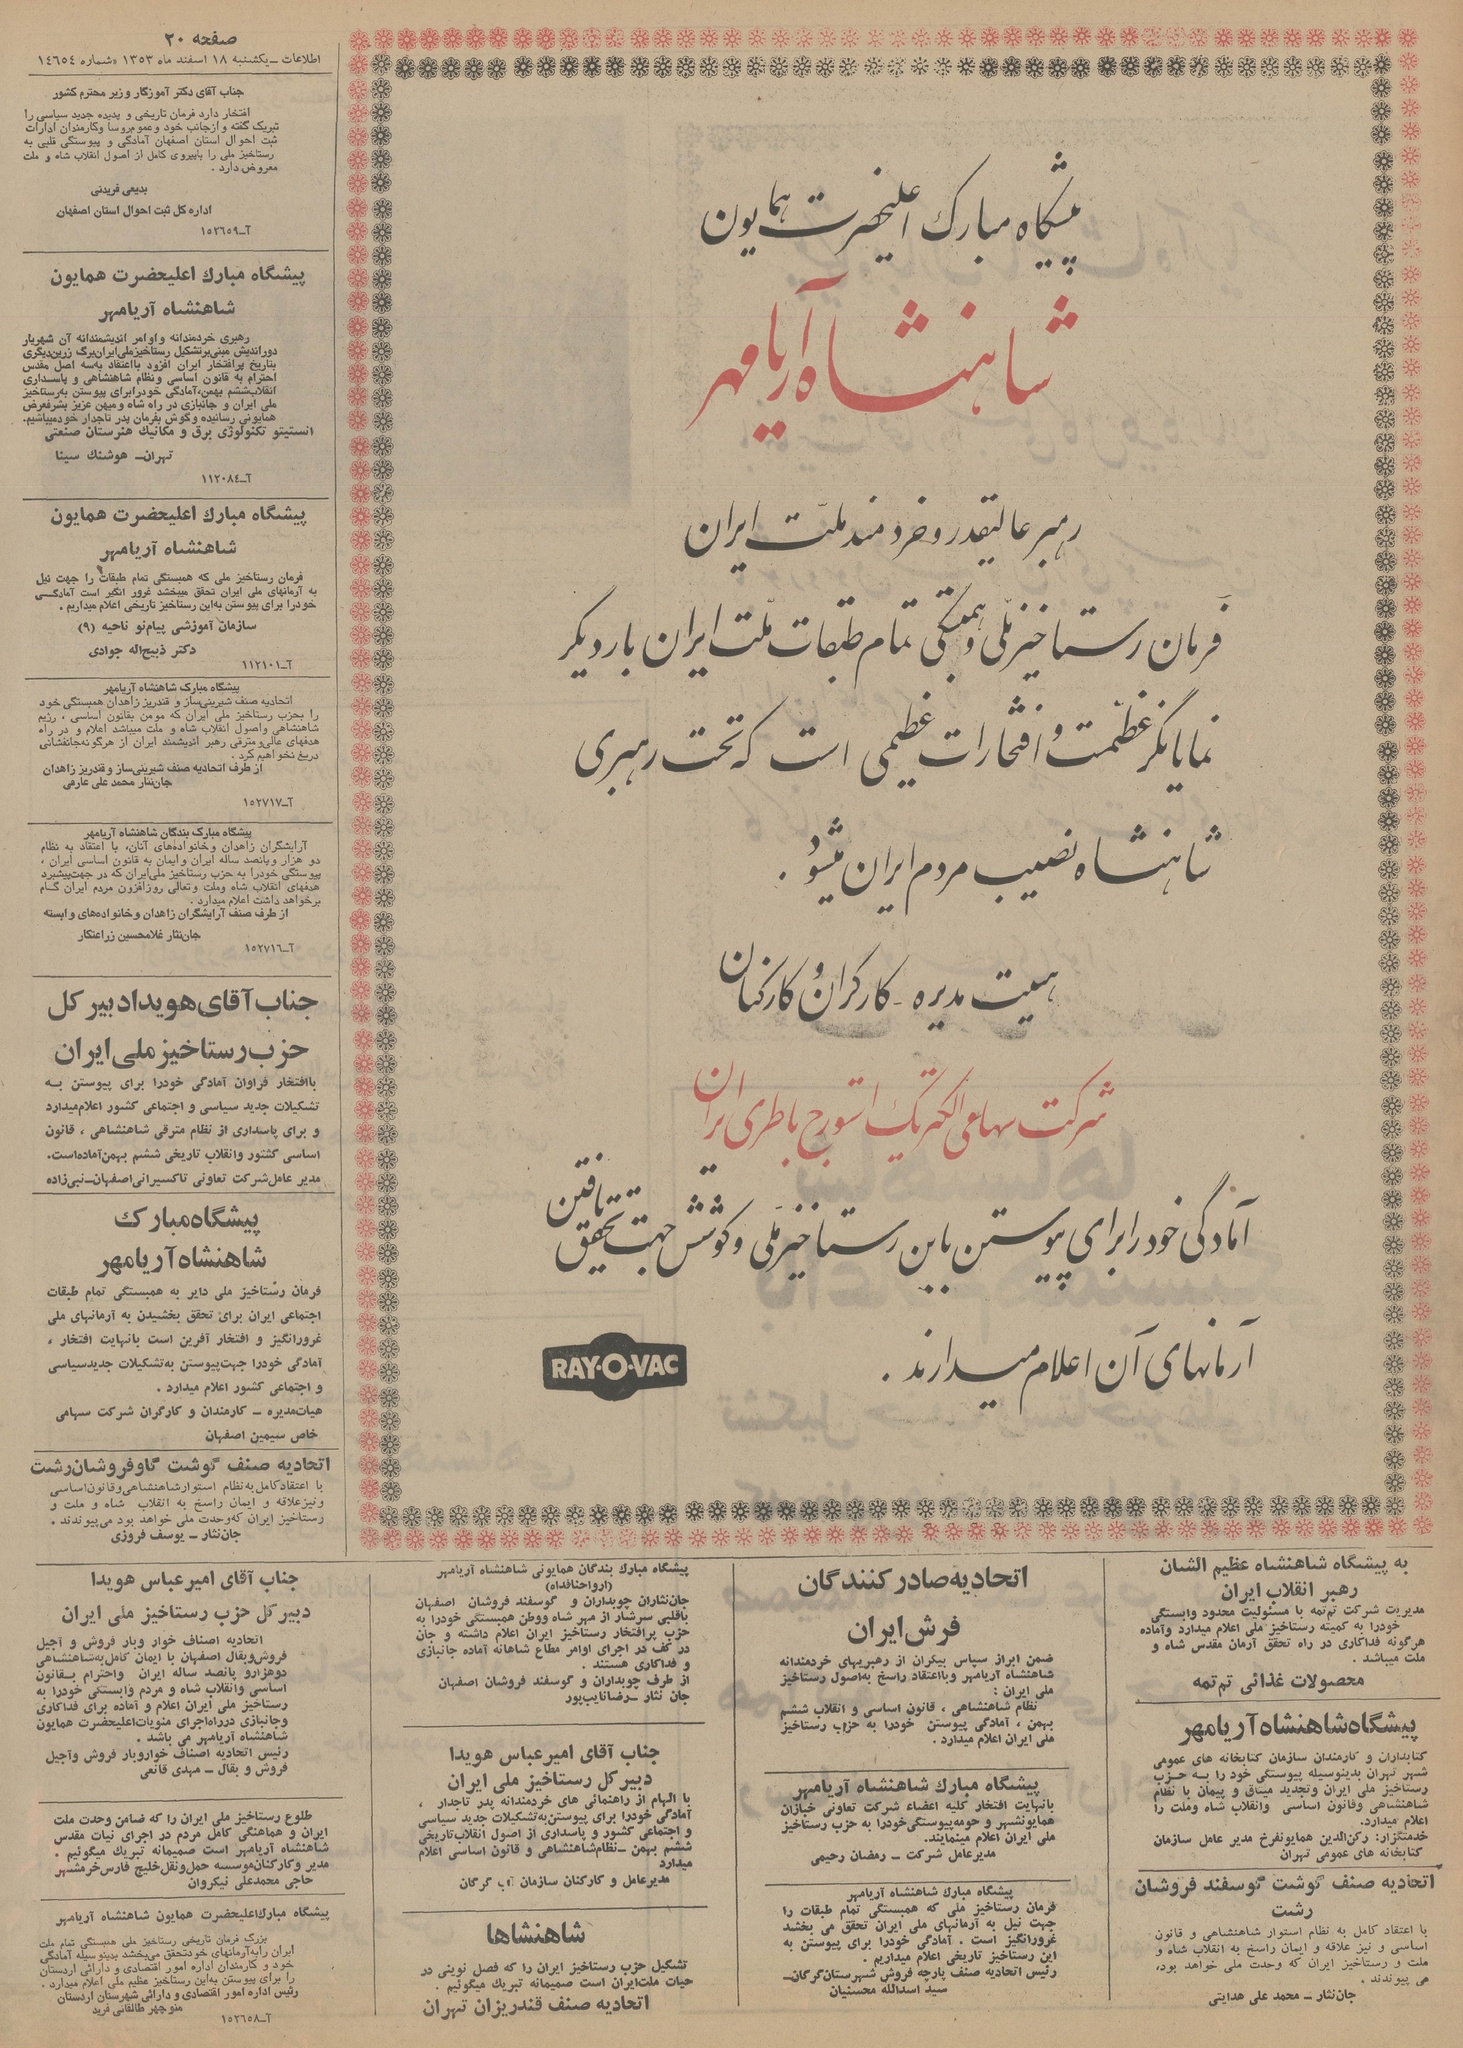 صفحه ۲۰
اطلاعات ـ یکشنبه ۱۸ اسفند ماه ۱۳۵۳ ـ شماره ۱۴۶۵۴
پیشگاه مبارک اعلیحضرت همایون
شاهنشاه آریامهر
رهبر عالیقدر و خردمند ملت ایران
فرمان رستاخیز ملی و همبستگی تمام طبقات ملت ایران بار دیگر
نمایانگر عظمت و افتخارات عظیمی است که تحت رهبری
شاهنشاه نصیب مردم ایران میشود .
هیئت مدیره ـ کارگران و کارکنان
شرکت سهامی الکتریک استورج باطری ایران
آمادگی خود را برای پیوستن باین رستاخیز ملی و کوشش جهت تحقق یافتن
آرمانهای آن اعلام میدارند .
RAY-O-VAC
جناب آقای دکتر آموزگار وزیر محترم کشور
افتخار دارد فرمان تاریخی و پدیده جدید سیاسی را
تبریک گفته و ازجانب خود و عموم روسا وکارمندان ادارات
ثبت احوال استان اصفهان آمادگی و پیوستگی قلبی به
رستاخیز ملی را باپیروی کامل از اصول انقلاب شاه و ملت
معروض دارد .
بدیعی فریدنی
اداره کل ثبت احوال استان اصفهان
آـ۱۵۲۶۵۹
پیشگاه مبارک اعلیحضرت همایون
شاهنشاه آریامهر
رهبری خردمندانه و اوامر اندیشمندانه آن شهریار
دوراندیش مبنی برتشکیل رستاخیز ملی ایران برگ زرین دیگری
بتاریخ پرافتخار ایران افزود بااعتقاد به سه اصل مقدس
احترام به قانون اساسی و نظام شاهنشاهی و پاسداری
انقلاب ششم بهمن، آمادگی خودرا برای پیوستن به رستاخیز
ملی ایران و جانبازی در راه شاه و میهن عزیز بشرفعرض
همایونی رسانیده و گوش بفرمان پدر تاجدار خود میباشیم.
انستیتو تکنولوژی برق و مکانیک هنرستان صنعتی
تهران ـ هوشنک سینا
آـ۱۱۲۰۸۴
پیشگاه مبارک اعلیحضرت همایون
شاهنشاه آریامهر
فرمان رستاخیز ملی که همبستگی تمام طبقات را جهت نیل
به آرمانهای ملی ایران تحقق میبخشد غرور انگیز است آمادگی
خودرا برای پیوستن به این رستاخیز تاریخی اعلام میداریم .
سازمان آموزشی پیام نو ناحیه (۹)
دکتر ذبیح اله جوادی
آـ۱۱۲۱۰۱
پیشگاه مبارک شاهنشاه آریامهر
اتحادیه صنف شیرینی ساز و قندریز زاهدان همبستگی خود
را بحزب رستاخیز ملی ایران که مومن بقانون اساسی ، رژیم
شاهنشاهی و اصول انقلاب شاه و ملت میباشد اعلام و در راه
هدفهای عالی و مترقی رهبر اندیشمند ایران از هرگونه جانفشانی
دریغ نخواهیم کرد .
از طرف اتحادیه صنف شیرینی ساز و قندریز زاهدان
جان نثار محمد علی عارفی
آـ۱۵۲۷۱۷
پیشگاه مبارک بندگان شاهنشاه آریامهر
آرایشگران زاهدان و خانواده های آنان، با اعتقاد به نظام
دو هزار و پانصد ساله ایران و ایمان به قانون اساسی ایران ،
پیوستگی خودرا به حزب رستاخیز ملی ایران که در جهت پیشبرد
هدفهای انقلاب شاه و ملت و تعالی روزافزون مردم ایران گام
برخواهد داشت اعلام میدارد .
از طرف صنف آرایشگران زاهدان و خانواده های وابسته
جان نثار غلامحسین زراعتکار
آـ۱۵۲۷۱۶
جناب آقای هویدا دبیر کل
حزب رستاخیز ملی ایران
باافتخار فراوان آمادگی خودرا برای پیوستن به
تشکیلات جدید سیاسی و اجتماعی کشور اعلام میدارد
و برای پاسداری از نظام مترقی شاهنشاهی ، قانون
اساسی کشور وانقلاب تاریخی ششم بهمن آماده است.
مدیر عامل شرکت تعاونی تاکسیرانی اصفهان ـ نبی زاده
پیشگاه مبارک
شاهنشاه آریامهر
فرمان رستاخیز ملی دایر به همبستگی تمام طبقات
اجتماعی ایران برای تحقق بخشیدن به آرمانهای ملی
غرورانگیز و افتخار آفرین است بانهایت افتخار ،
آمادگی خودرا جهت پیوستن به تشکیلات جدید سیاسی
و اجتماعی کشور اعلام میدارد .
هیات مدیره ـ کارمندان و کارگران شرکت سهامی
خاص سیمین اصفهان
اتحادیه صنف گوشت گاوفروشان رشت
با اعتقاد کامل به نظام استوار شاهنشاهی و قانون اساسی
و نیز علاقه و ایمان راسخ به انقلاب شاه و ملت و
رستاخیز ایران که وحدت ملی خواهد بود می پیوندند .
جان نثار ـ یوسف فروزی
به پیشگاه شاهنشاه عظیم الشان
رهبر انقلاب ایران
مدیریت شرکت تم تمه با مسئولیت محدود وابستگی
خودرا به کمیته رستاخیز ملی اعلام میدارد وآماده
هرگونه فداکاری در راه تحقق آرمان مقدس شاه و
ملت میباشد .
محصولات غذائی تم تمه
پیشگاه شاهنشاه آریامهر
کتابداران و کارمندان سازمان کتابخانه های عمومی
شهر تهران بدینوسیله پیوستگی خود را به حزب
رستاخیز ملی ایران وتجدید میثاق و پیمان با نظام
شاهنشاهی وقانون اساسی وانقلاب شاه وملت را
اعلام میدارد.
خدمتگزار: رکن الدین همایونفرخ مدیر عامل سازمان
کتابخانه های عمومی تهران
اتحادیه صنف گوشت گوسفند فروشان
رشت
با اعتقاد کامل به نظام استوار شاهنشاهی و قانون
اساسی و نیز علاقه و ایمان راسخ به انقلاب شاه و
ملت و رستاخیز ایران که وحدت ملی خواهد بود،
می پیوندند .
جان نثار ـ محمد علی هدایتی
اتحادیه صادر کنندگان
فرش ایران
ضمن ابراز سپاس بیکران از رهبریهای خردمندانه
شاهنشاه آریامهر وبااعتقاد راسخ به اصول رستاخیز
ملی ایران :
نظام شاهنشاهی ، قانون اساسی و انقلاب ششم
بهمن ، آمادگی پیوستن خودرا به حزب رستاخیز
ملی ایران اعلام میدارد .
پیشگاه مبارک شاهنشاه آریامهر
بانهایت افتخار کلیه اعضاء شرکت تعاونی خبازان
همایونشهر و حومه پیوستگی خودرا به حزب رستاخیز
ملی ایران اعلام مینمایند.
مدیرعامل شرکت ـ رمضان رحیمی
پیشگاه مبارک شاهنشاه آریامهر
فرمان رستاخیز ملی که همبستگی تمام طبقات را
جهت نیل به آرمانهای ملی ایران تحقق می بخشد
غرورانگیز است . آمادگی خودرا برای پیوستن به
این رستاخیز تاریخی اعلام میداریم .
رئیس اتحادیه صنف پارچه فروش شهرستان گرگان ـ
سید اسدالله محسنیان
پیشگاه مبارک بندگان همایونی شاهنشاه آریامهر
(ارواحنافداه)
جان نثاران چوبداران و گوسفند فروشان اصفهان
باقلبی سرشار از مهر شاه ووطن همبستگی خودرا به
حزب پرافتخار رستاخیز ایران اعلام داشته و جان
در کف در اجرای اوامر مطاع شاهانه آماده جانبازی
و فداکاری هستند .
از طرف چوبداران و گوسفند فروشان اصفهان
جان نثار ـ رضانایب پور
جناب آقای امیرعباس هویدا
دبیر کل رستاخیز ملی ایران
با الهام از راهنمائی های خردمندانه پدر تاجدار ،
آمادگی خودرا برای پیوستن به تشکیلات جدید سیاسی
و اجتماعی کشور و پاسداری از اصول انقلاب تاریخی
ششم بهمن ـ نظام شاهنشاهی و قانون اساسی اعلام
میدارد
مدیرعامل و کارکنان سازمان آب گرگان
شاهنشاها
تشکیل حزب رستاخیز ایران را که فصل نوینی در
حیات ملت ایران است صمیمانه تبریک میگوئیم .
اتحادیه صنف قندریزان تهران
جناب آقای امیرعباس هویدا
دبیر کل حزب رستاخیز ملی ایران
اتحادیه اصناف خوار وبار فروش و آجیل
فروش وبقال اصفهان با ایمان کامل به شاهنشاهی
دوهزارو پانصد ساله ایران واحترام بقانون
اساسی وانقلاب شاه و مردم وابستگی خودرا به
رستاخیز ملی ایران اعلام و آماده برای فداکاری
وجانبازی درراه اجرای منویات اعلیحضرت همایون
شاهنشاه آریامهر می باشد .
رئیس اتحادیه اصناف خواروبار فروش وآجیل
فروش و بقال ـ مهدی قانعی
طلوع رستاخیز ملی ایران را که ضامن وحدت ملت
ایران و هماهنگی کامل مردم در اجرای نیات مقدس
شاهنشاه آریامهر است صمیمانه تبریک میگوئیم .
مدیر وکارکنان موسسه حمل ونقل خلیج فارس خرمشهر
حاجی محمدعلی نیکروان
پیشگاه مبارک اعلیحضرت همایون شاهنشاه آریامهر
بزرگ فرمان تاریخی رستاخیز ملی همبستگی تمام ملت
ایران رابه آرمانهای خودتحقق می بخشد بدینوسیله آمادگی
خود و کارمندان اداره امور اقتصادی و دارائی اردستان
را برای پیوستن به این رستاخیز عظیم ملی اعلام میدارد .
رئیس اداره امور اقتصادی و دارائی شهرستان اردستان
منوچهر طالقانی فرید
آـ۱۵۲۶۵۸